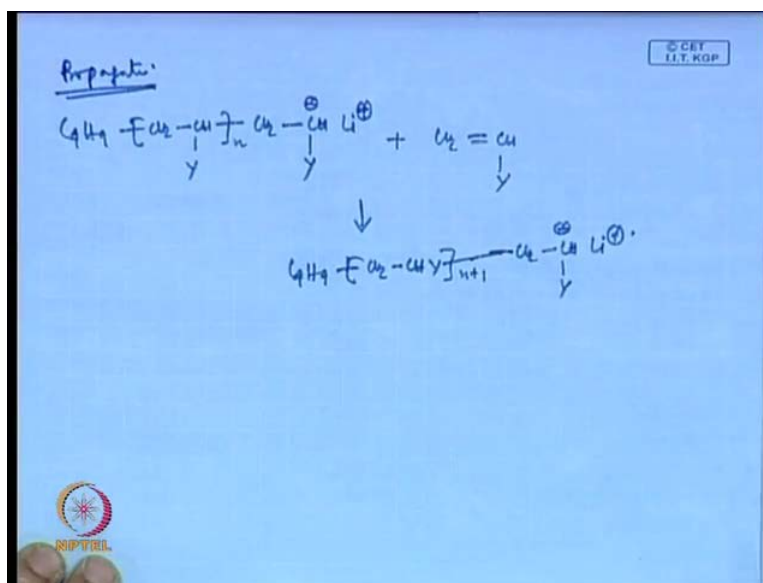 © CET
I.I.T. KGP
Propagati.
C4H9 -[CH2 - CH ]n CH2 - CH⊖ Li⊕ + CH2 = CH
Y Y Y
↓
C4H9 -[CH2 - CHY]n+1 - CH2 - CH⊖ Li⊕.
Y
NPTEL